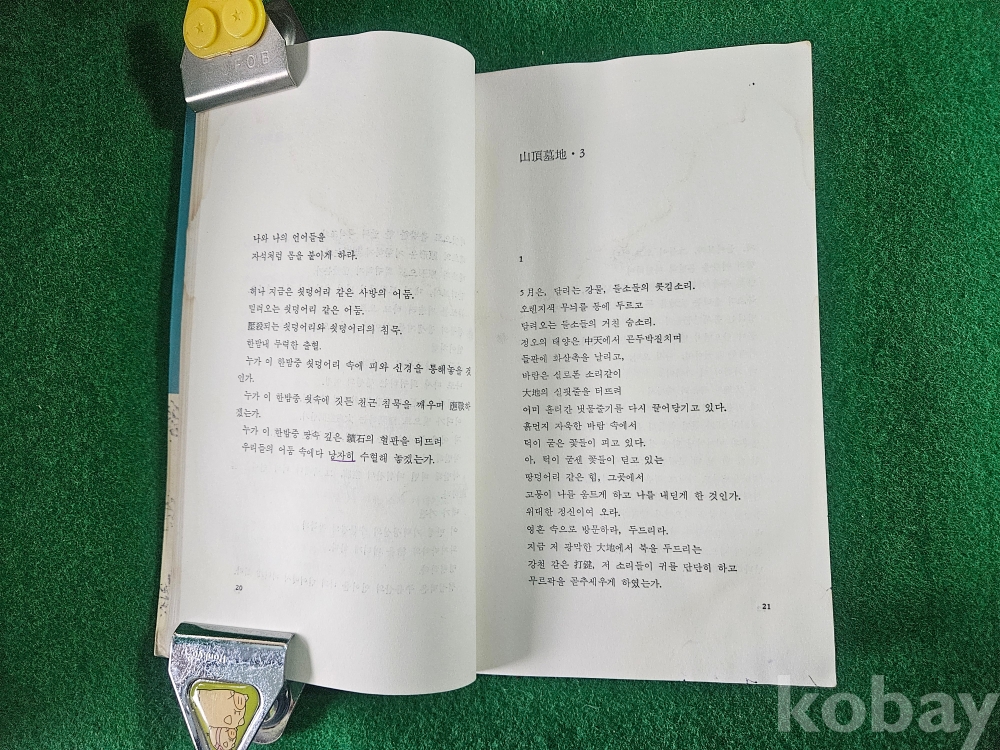 FOB
나와 나의 언어들을
자식처럼 몸을 붙이게 하라.
허나 지금은 쇳덩어리 같은 사방의 어둠.
밀려오는 쇳덩어리 같은 어둠.
壓殺되는 쇳덩어리와 쇳덩어리의 침묵.
한밤내 무력한 출혈.
누가 이 한밤중 쇳덩어리 속에 피와 신경을 통해놓을 것
인가.
누가 이 한밤중 쇳속에 깃든 천근 침묵을 깨우며
겠는가.
누가 이 한밤중 땅속 깊은 鑛石의 혈관을 터뜨려
우리들의 어둠 속에다 낭자히 수혈해 놓겠는가.
20
山頂墓地·3
1
5月은, 달리는 강물, 들소들의 콧김소리.
오렌지색 무늬를 등에 두르고
달려오는 들소들의 거친 숨소리.
정오의 태양은 中天에서 곤두박질치며
들판에 화살촉을 날리고,
바람은 실로폰 소리같이
大地의 실핏줄을 터뜨려
어미 흘러간 냇물줄기를 다시 끌어당기고 있다.
흙먼지 자욱한 바람 속에서
턱이 굵은 꽃들이 피고 있다.
아, 턱이 굳센 꽃들이 딛고 있는
땅덩어리 같은 힘, 그곳에서
고통이 나를 움트게 하고 나를 내딛게 한 것인가.
위대한 정신이여 오라.
영혼 속으로 방문하라, 두드리라.
지금 저 광막한 大地에서 북을 두드리는
강철 같은 打鍵, 저 소리들이 귀를 단단히 하고
무르팍을 곧추세우게 하였는가.
21
kobay